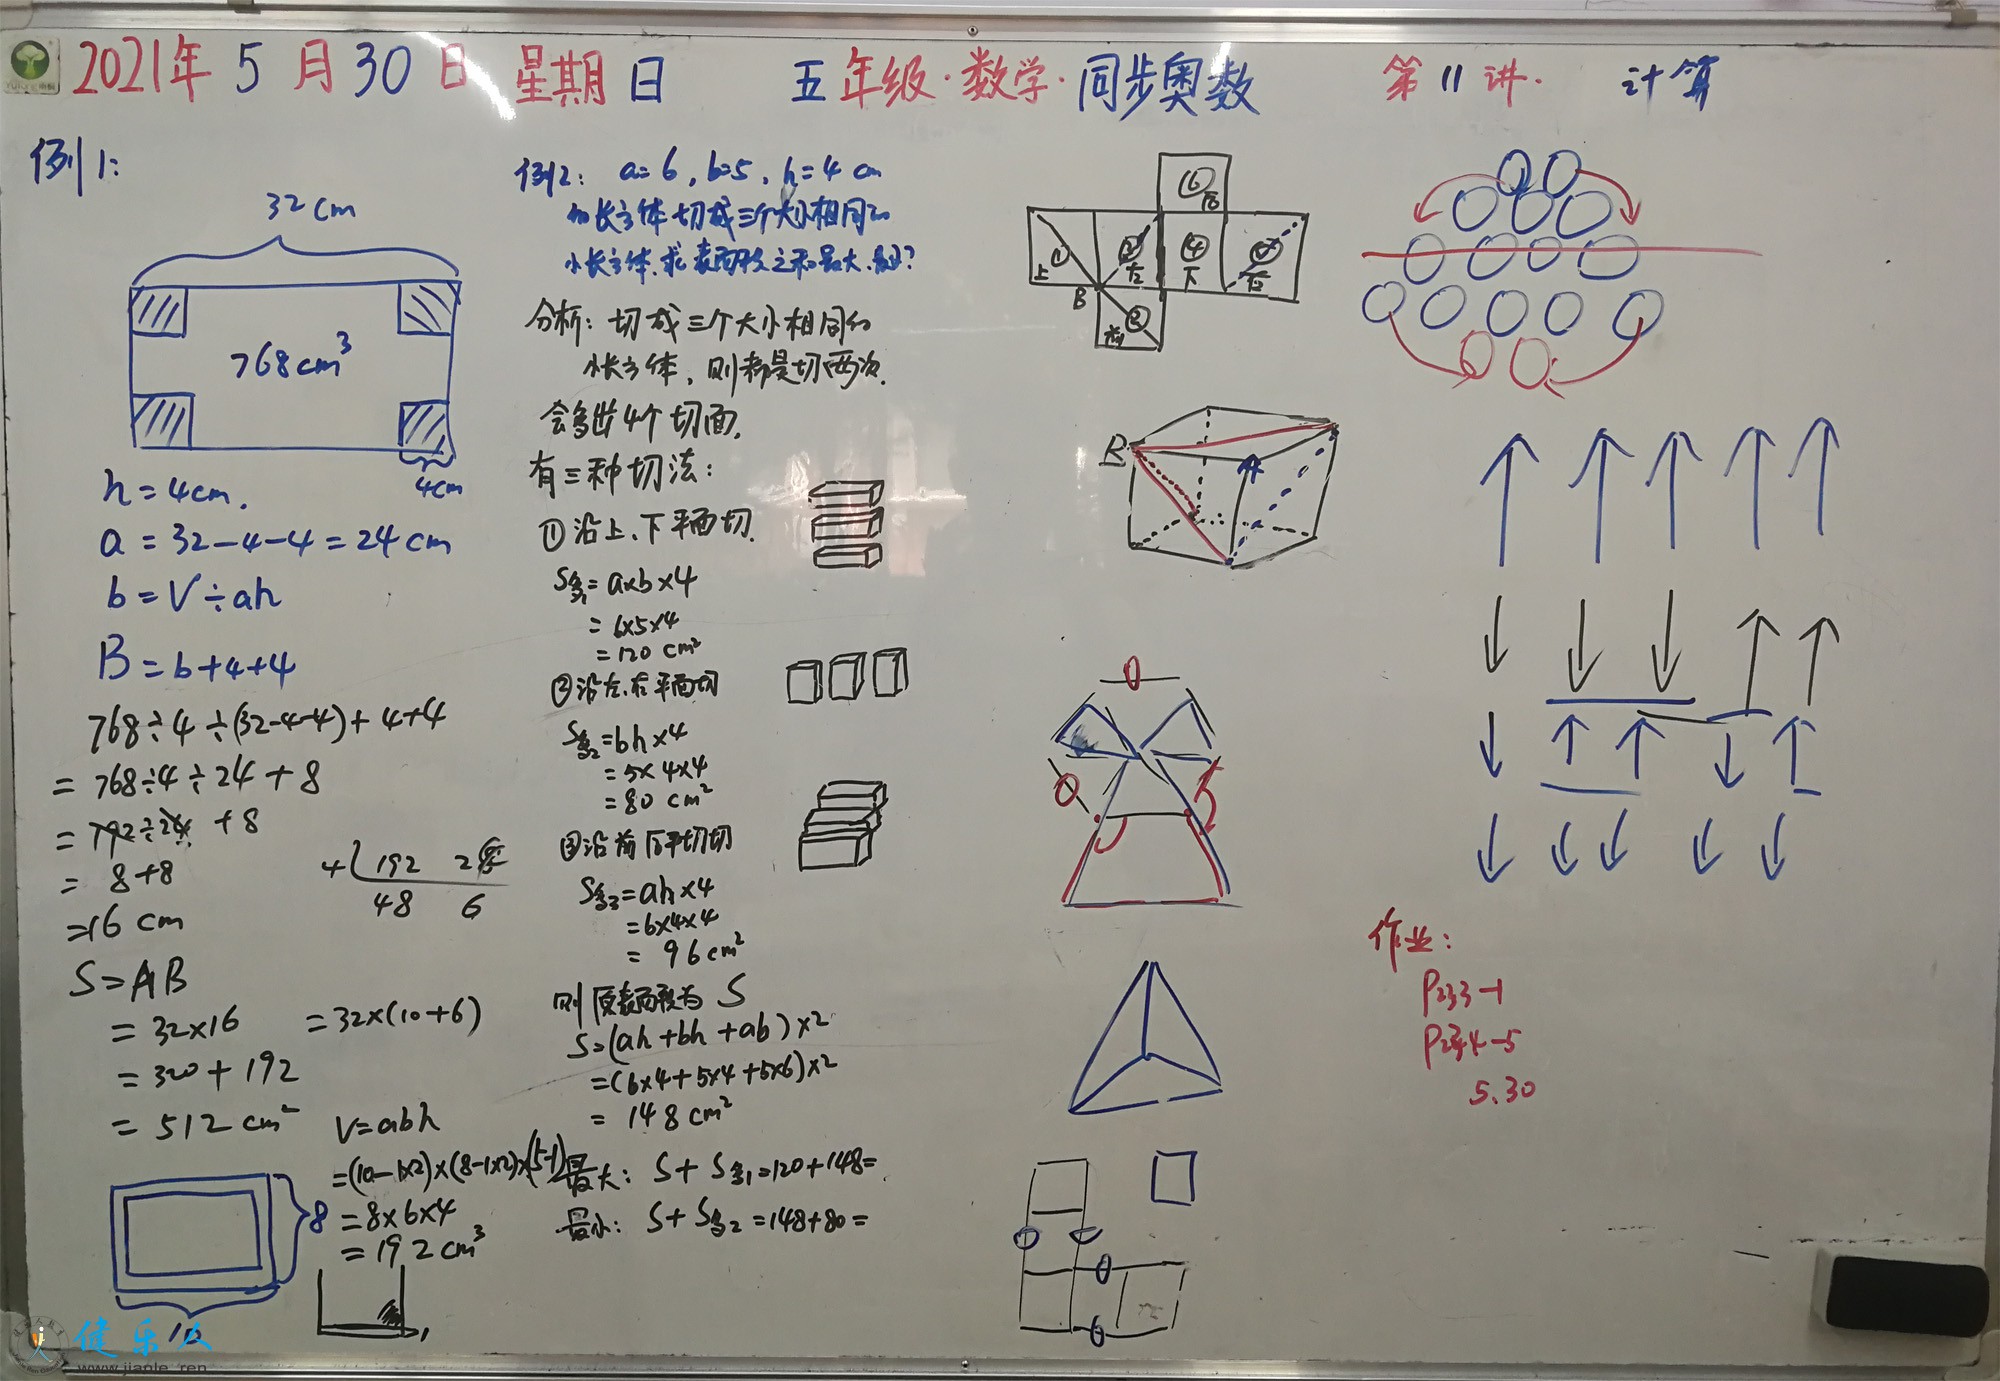 2021年 5 月 30 日 星期日 五年级·数学·同步奥数 第 11 讲· 计算
例1:
32cm
768cm³
4cm
h=4cm.
a=32-4-4=24cm
b=V÷ah
B=b+4+4
768÷4÷(32-4-4)+4+4
=768÷4÷24+8
=192÷24+8
=8+8
=16 cm
4 192 24
48 6
S=AB
=32×16 =32×(10+6)
=320+192
=512cm²
8
10
V=abh
=(10-1×2)×(8-1×2)×(5-1)
=8×6×4
=192cm³
例2: a=6,b=5,h=4 cm
的长方体切成三个大小相同的
小长方体.求表面积之和最大.最小?
分析:切成三个大小相同的
小长方体,则都是切两次.
会多出4个切面.
有三种切法:
①沿上、下平面切.
S多1=a×b×4
=6×5×4
=120 cm²
②沿左、右平面切
S多2=bh×4
=5×4×4
=80 cm²
③沿前后平切切
S多3=ah×4
=6×4×4
= 96cm²
则原表面积为 S
S=(ah+bh+ab)×2
=(6×4+5×4+5×6)×2
= 148cm²
最大: S+S多1=120+148=
最小: S+S多2=148+80=
⑥
后
①
上
③
右
④
下
⑤
左
B
②
前
B
A
作业:
P233-1
P234-5
5.30
健乐人
www.jianle.ren